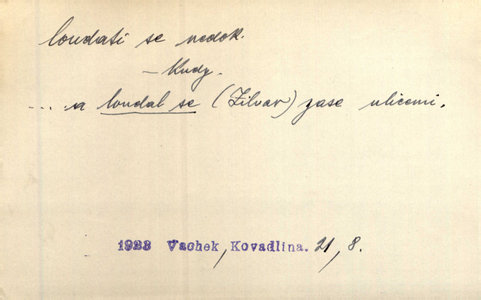 loudati se nedok.
– Kudy.
... a loudal se (Žilvar) zase ulicemi.
1923 Vachek, Kovadlina. 21, 8.